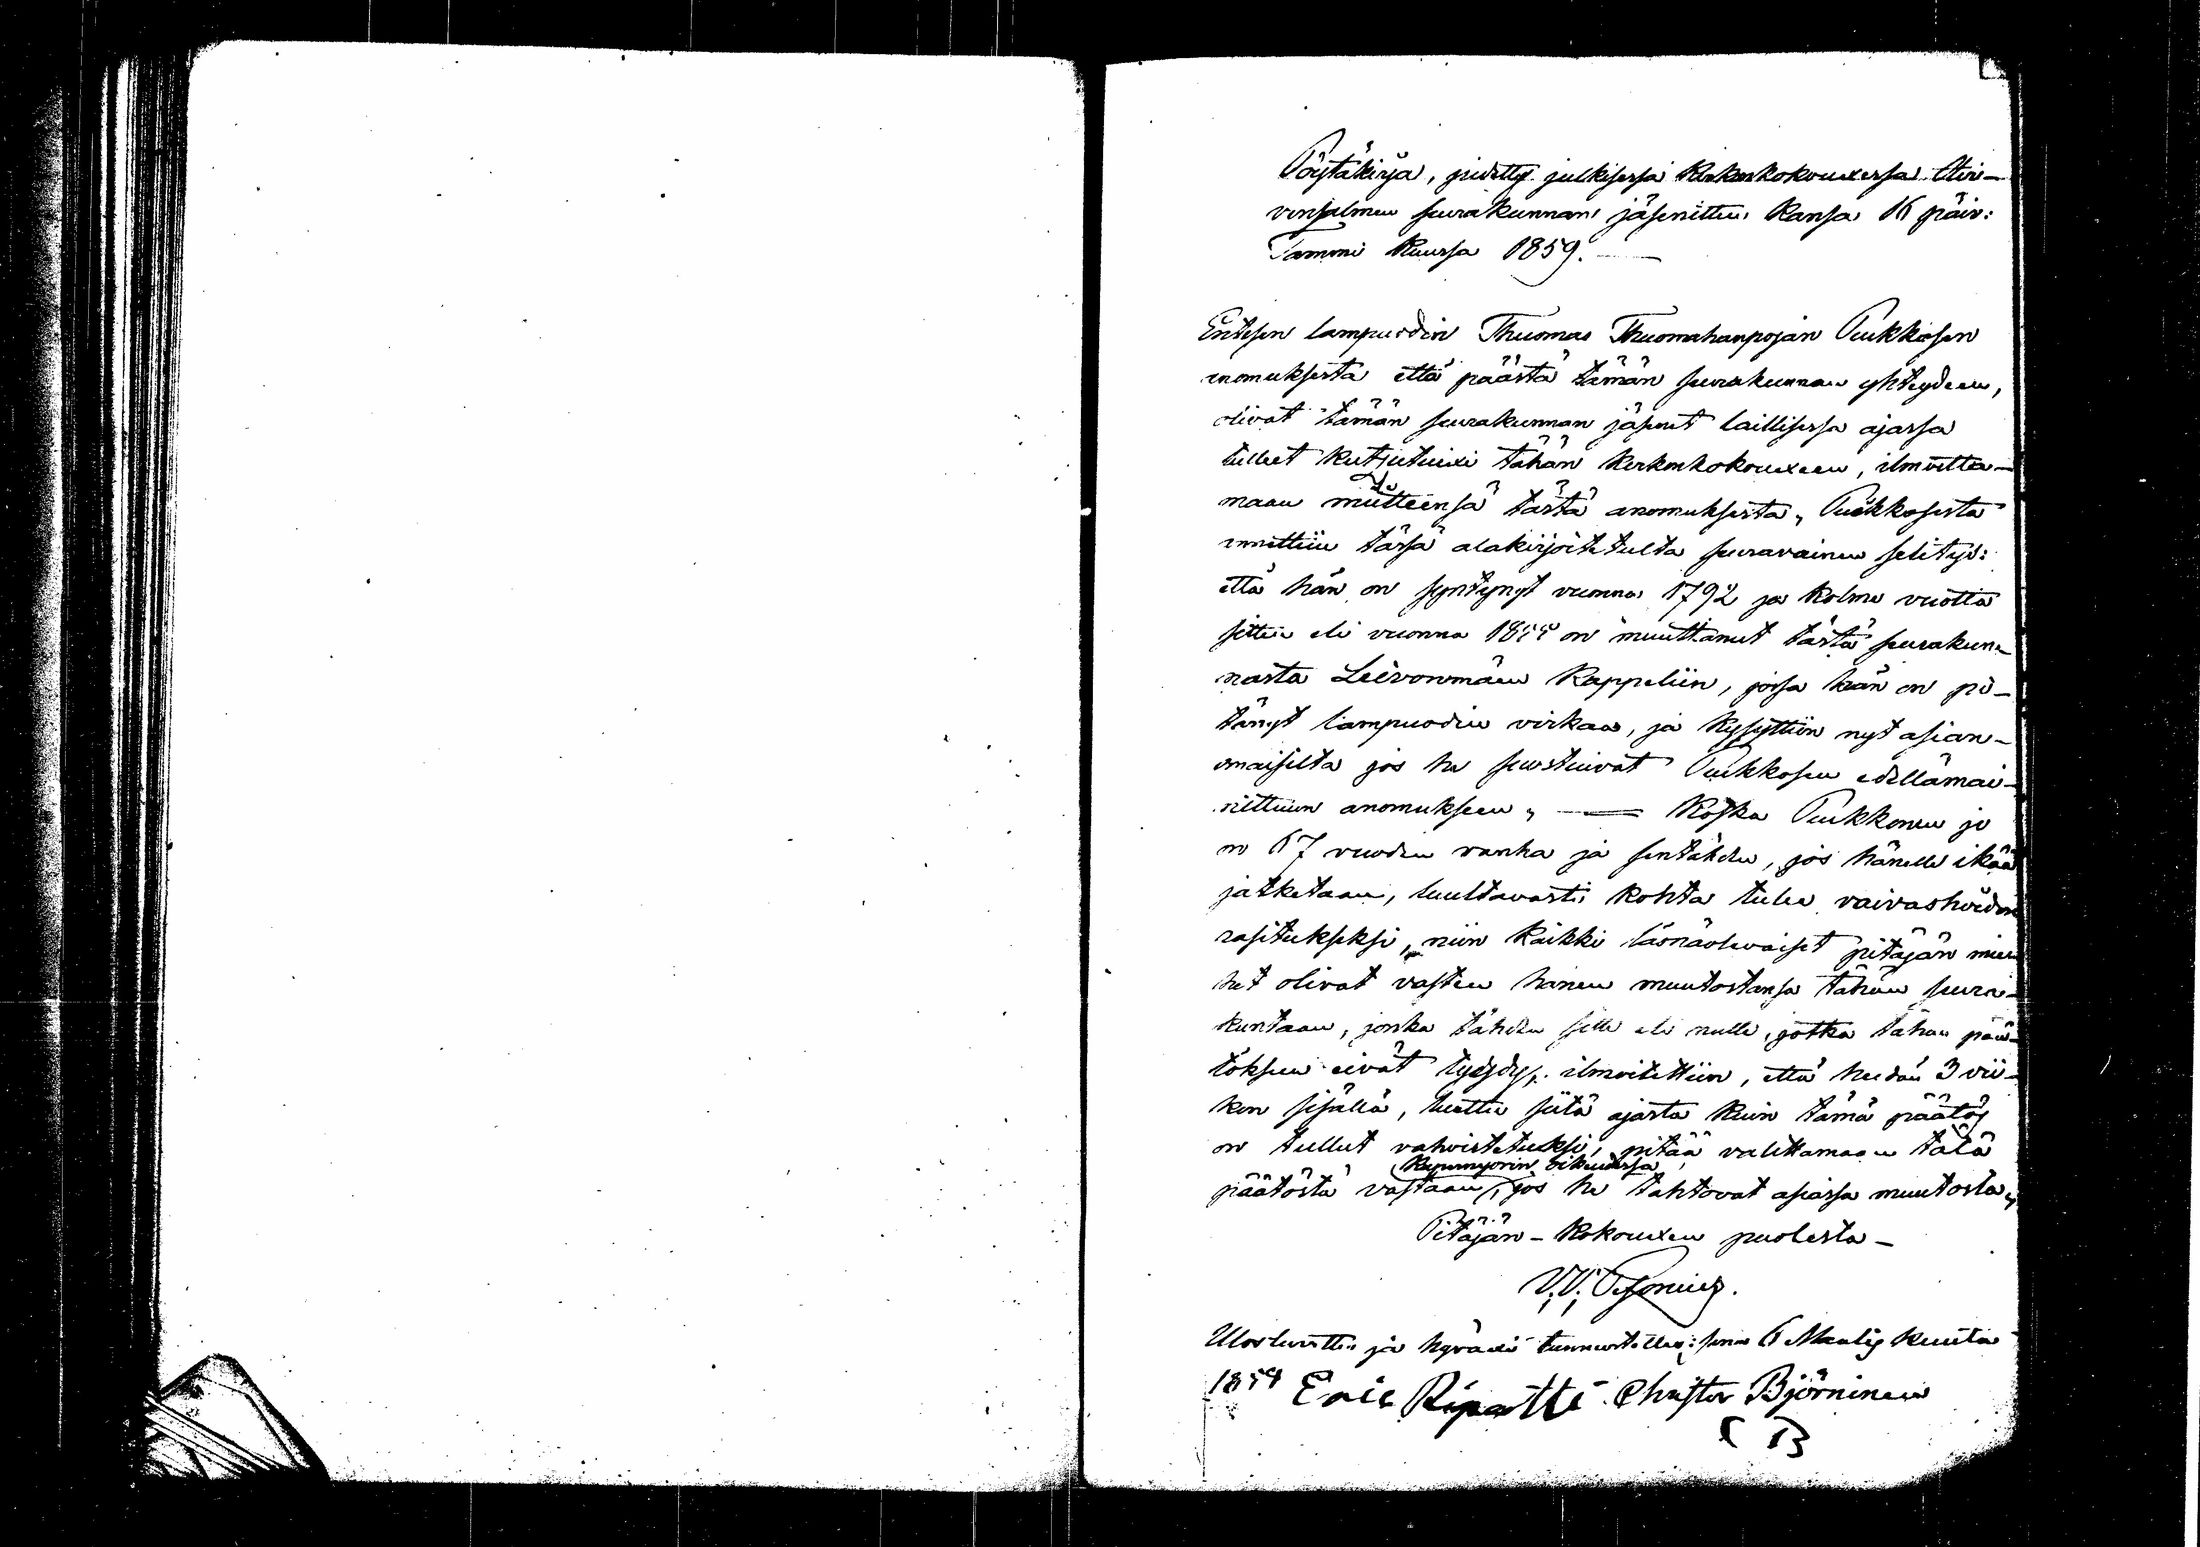 Pöytäkirja, pidetty julkisessa Kirkonkokouxessa Hir-
vensalmen seurakunnan jäsenitten kansa 16 päiv:
Tammi Kuussa 1859.
Entisen lampuodin Thuomas Thuomahanpojan Pukkosen
anomuksesta että päästä tämän seurakunnan yhteydeen,
olivat tämän seurakunnan jäsenet laillisessa ajassa
tulleet kutsutuixi tähän Kirkonkokouxeen, ilmoitta-
maan mielteensä tästä anomuksesta, Pukkosesta
annettiin tässä alakirjoitetulta seuravainen selitys:
että hän on syntynyt vuonna 1792 ja kolme vuotta
sitten eli vuonna on muuttanut tästä seurakun-
nasta Leivonmäen Kappeliin, jossa hän on pi-
tänyt lampuodin virkaa, ja kysyttiin nyt asian-
omaisilta jos he suostuivat Pukkosen edellämai-
nittuun anomukseen, — Koska Pukkonen jo
on 67 vuoden vanha ja sentähden, jos hänelle ikää
jatketaan, luultavasti kohta tulee vaivashoidon
rasitukseksi, niin kaikki läsnäolevaiset pitäjän mie-
het olivat vasten hänen muutostansa tähän seura-
kuntaan, jonka tähden sille eli niille, jotka tähän pää-
töksen eivät tyydy, ilmoitettiin, että heidän 3 vii-
kon sisällä, luettu siitä ajasta kuin tämä päätös
on tullut vahvistetuksi, pitää valittamaan tätä
päätöstä vastaan Kuvernyörin oikeudessa, jos he tahtovat asiassa muutosta,
Pitäjän-Kokouxen puolesta-
Ulosluettu ja hyväxi tunnustettu: sinä 6 Maalis kuuta
1859 Eric Ripatti Christer Björninen
C B